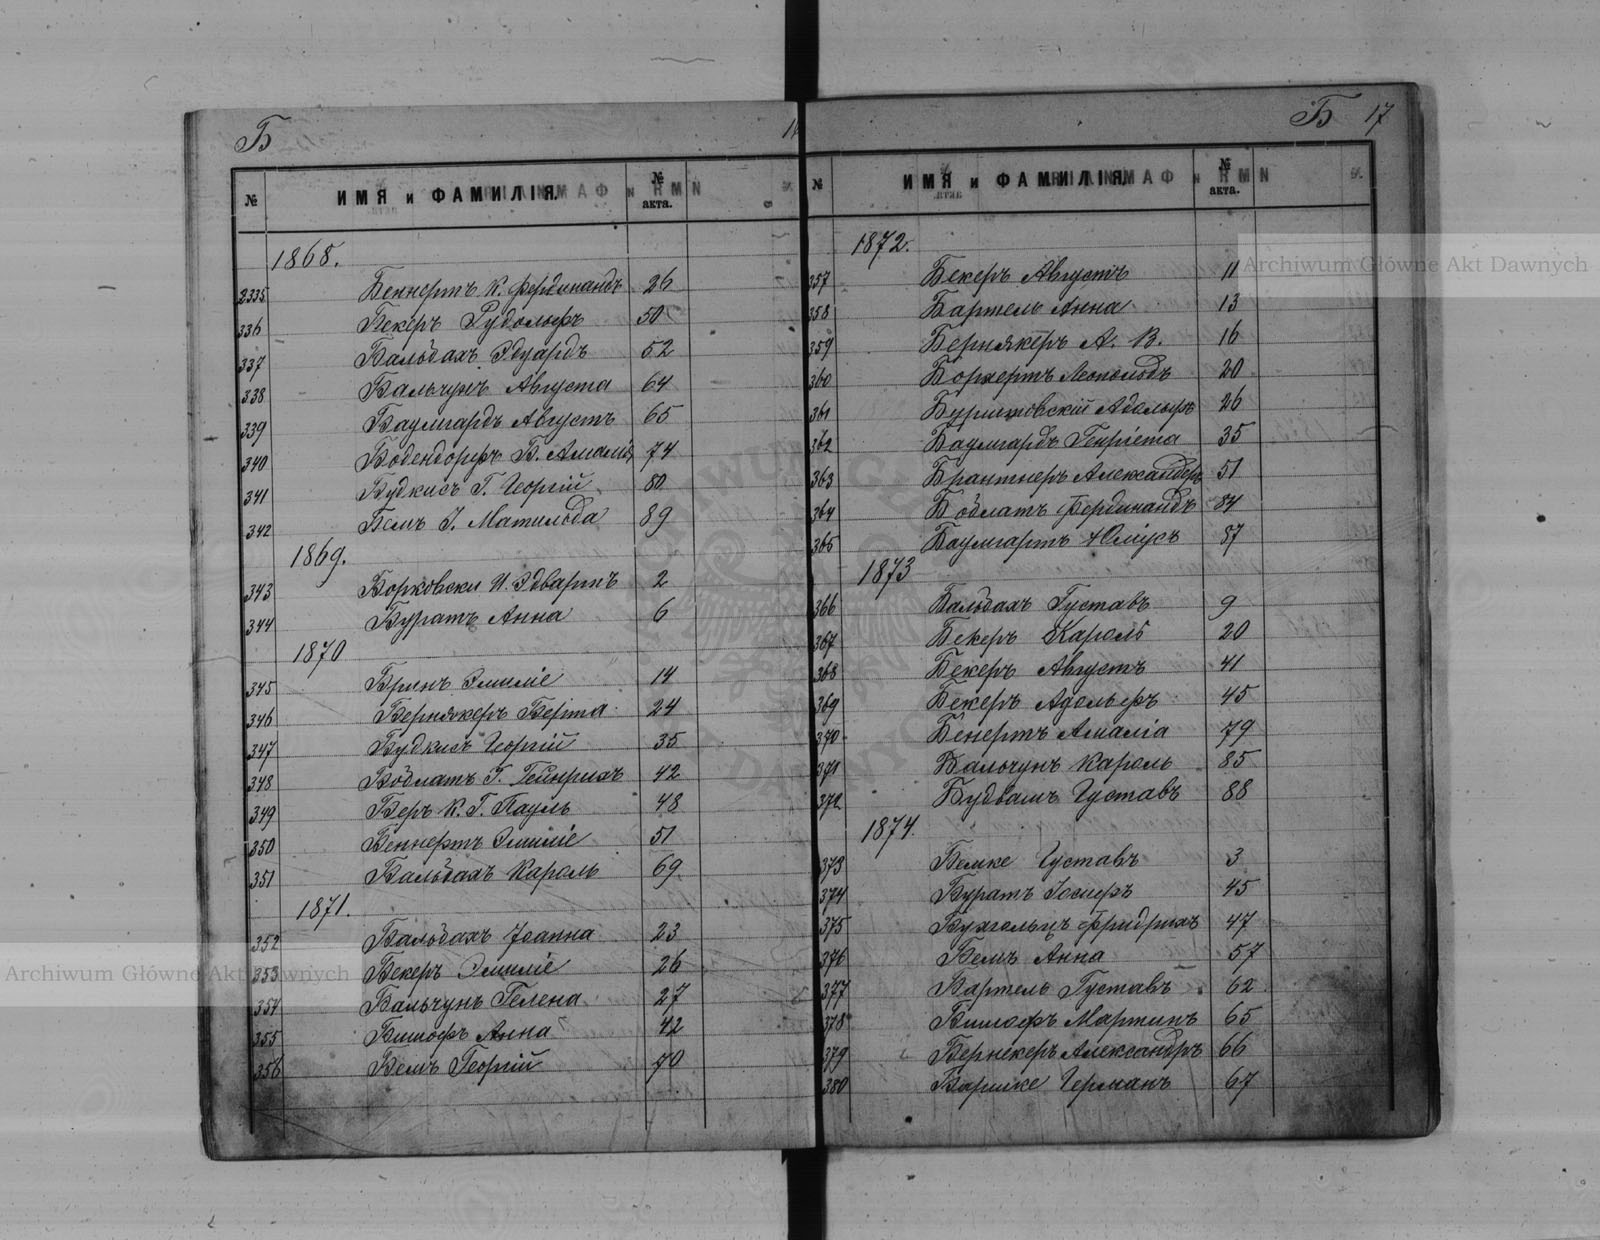 Б
№ ИМЯ и ФАМИЛІЯ. № акта.
1868.
2335 Беннертъ К. Фердинандъ 26
336 Бекеръ Рудольфъ 50
337 Бальдахъ Эдуардъ 52
338 Бальчунъ Августа 64
339 Баумгардъ Августъ 65
340 Бодендорфъ В. Амалія 74
341 Будкисъ Г. Георгій 80
342 Бемъ І. Матильда 89
1869.
343 Борковски И. Эдвартъ 2
344 Буратъ Анна 6
1870
345 Эмиліе 14
346 Бернякеръ Берта 24
347 Будкисъ Георгій 35
348 Бодлатъ Г. Гейнрихъ 42
349 Беръ К. Г. Пауль 48
350 Беннертъ Эмиліе 51
351 Бальдахъ Кароль 69
1871.
352 Бальдахъ Іоанна 23
353 Бекеръ Эмиліе 26
354 Бальчунъ Гелена 27
355 Бишофъ Анна 42
356 Бемъ Георгій 70
Б 17
№ ИМЯ и ФАМИЛІЯ. № акта.
1872.
357 Бекеръ Августъ 11
358 Бартель Анна 13
359 Бернякеръ А. В. 16
360 Боркертъ Леопольдъ 20
361 Адольфъ 26
362 Баумгардъ Генріета 35
363 Брантнеръ Александеръ 51
364 Бодлатъ Фердинандъ 84
365 Баумгартъ Юліусъ 87
1873
366 Бальдахъ Густавъ 9
367 Бекеръ Кароль 20
368 Бекеръ Августъ 41
369 Бекеръ Адольфъ 45
370 Бенертъ Амалія 79
371 Бальчунъ Кароль 85
372 Будвашъ Густавъ 88
1874.
373 Бемке Густавъ 3
374 Буратъ Іосифъ 45
375 Бухгольцъ Фридрихъ 47
376 Бемъ Анна 57
377 Бартель Густавъ 62
378 Бишофъ Мартинъ 65
379 Бернекеръ Александръ 66
380 Варшке Германъ 67
Archiwum Główne Akt Dawnych
Archiwum Główne Akt Dawnych